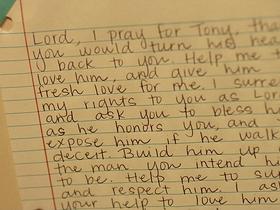 Lord, I pray for Tony, that
you would turn his
back to you. Help me
love him, and give him
fresh love for me. I
my rights to you as
and ask you to bless
as he honors you, and
expose him if he
deceit. Build him up
the man you intend
to be. Help me to
and respect him. I
your help to love him